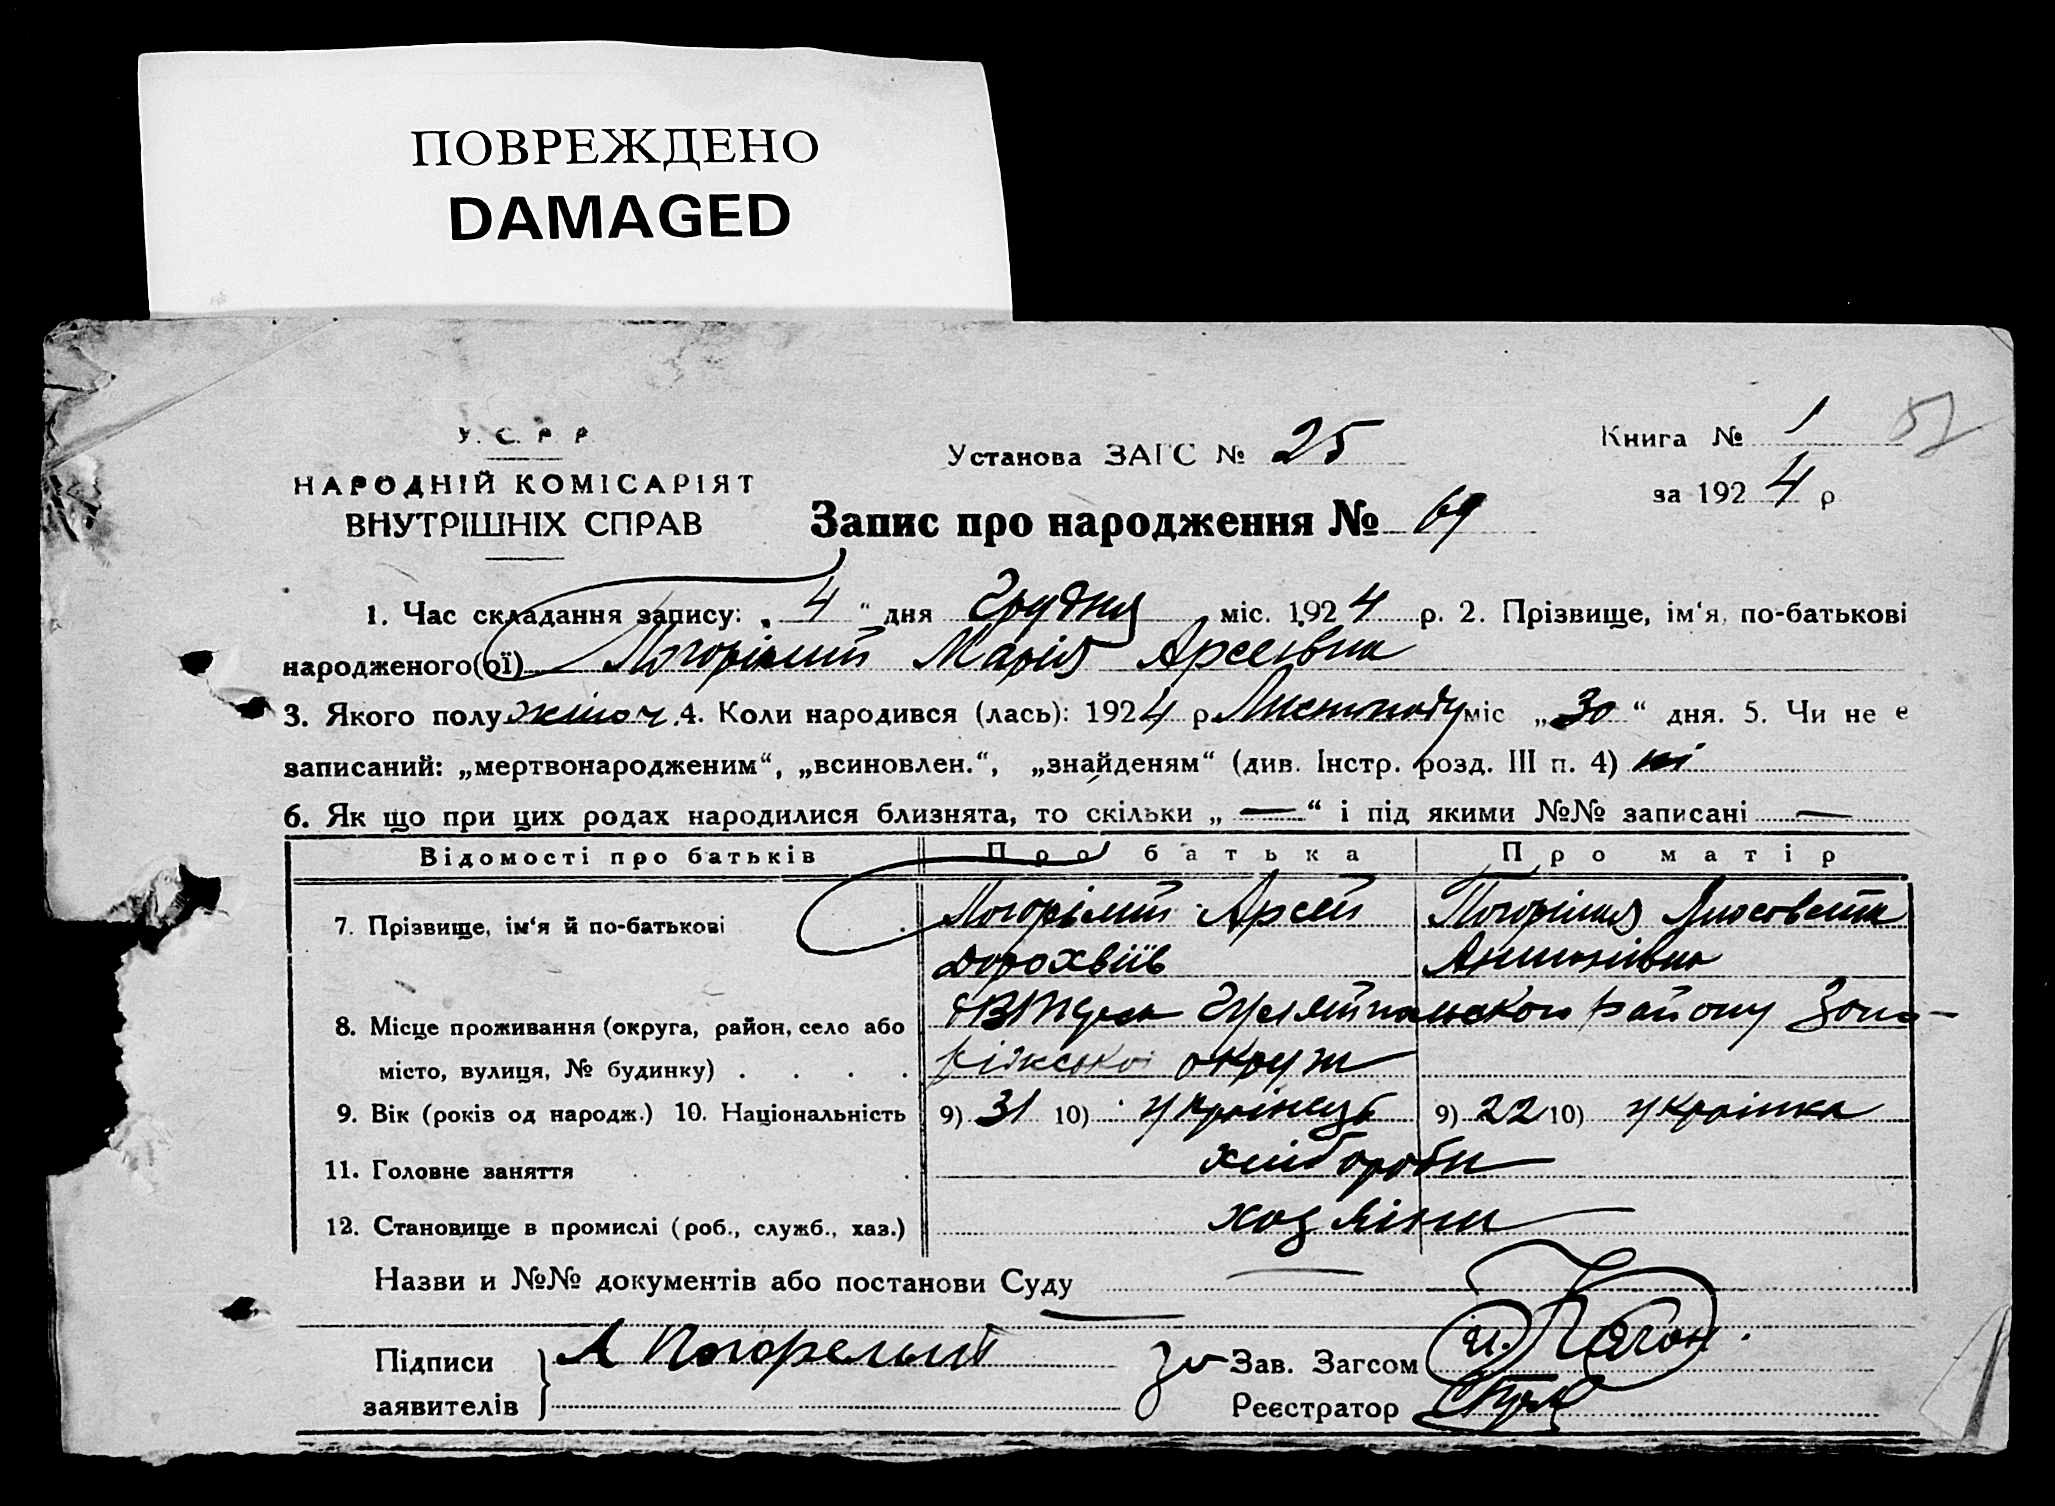 ПОВРЕЖДЕНО
DAMAGED
У. С. Р. Р.
НАРОДНІЙ КОМІСАРІЯТ
ВНУТРІШНІХ СПРАВ
Установа ЗАГС № 25
Книга № 1
за 1924 р
Запис про народження № 69
1. Час складання запису: „4“ дня Грудня міс. 1924 р. 2. Прізвище, ім‘я, по-батькові
народженого(ої) Погорілий Марія Арсеівна
3. Якого полу жіноч. 4. Коли народився (лась): 1924 р Листопаду міс „30“ дня. 5. Чи не є
записаний: „мертвонародженим“, „всиновлен.“, „знайденям“ (див. Інстр. розд. III п. 4) ні
6. Як що при цих родах народилися близнята, то скільки „—“ і під якими №№ записані —
Відомості про батьків Про батька Про матір
7. Прізвище, ім‘я й по-батькові Погорілий Арсен Погоріла
Дорохвіїв Антонівна
8. Місце проживання (округа, район, село або Гуляйпольского району Запо-
місто, вулиця, № будинку) ріжської округи
9. Вік (років од народж.) 10. Національність 9) 31 10) українець 9) 22 10) українка
11. Головне заняття хлібороби
12. Становище в промислі (роб., служб., хаз.) хазяіни
Назви и №№ документів або постанови Суду —
Підписи А Погорелый За Зав. Загсом
заявителів Реєстратор